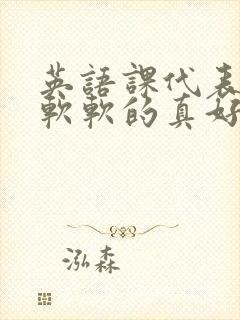 英語課代表
軟軟的真好
泓森